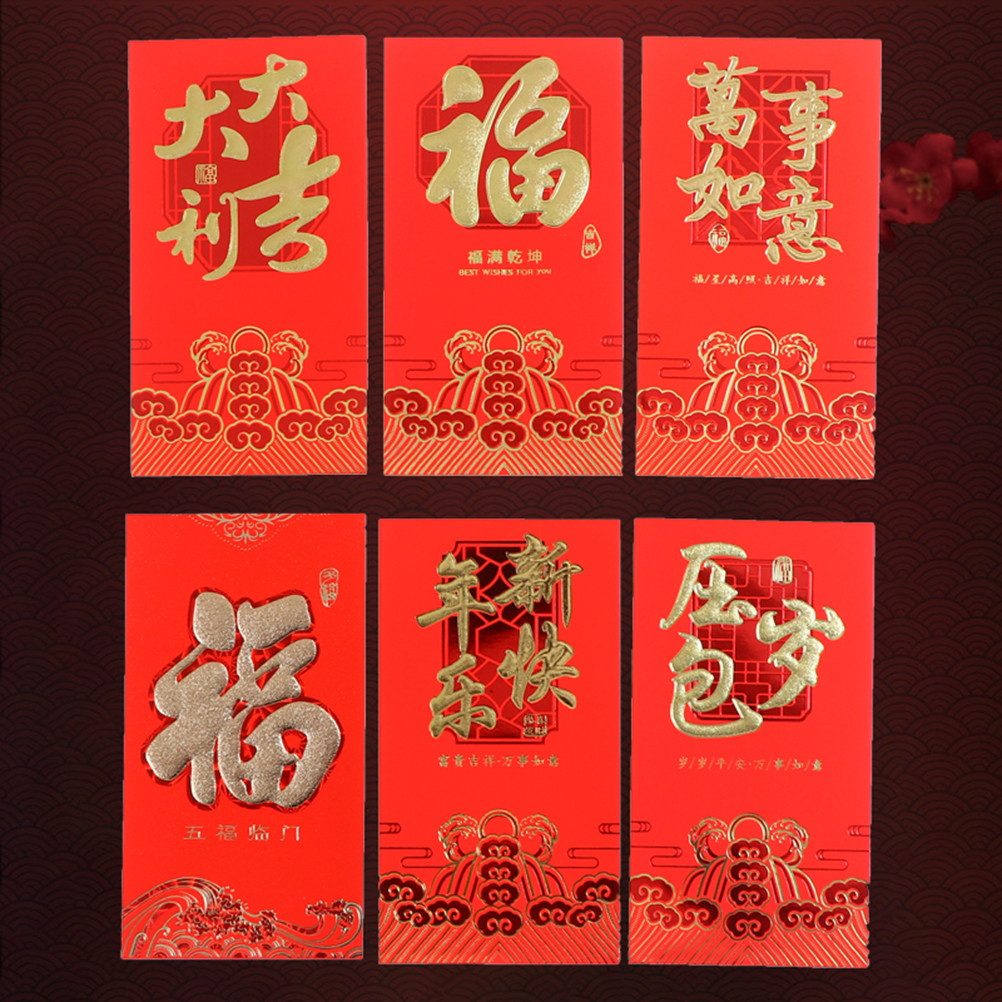 大吉
大利
福
福满乾坤
BEST WISHES FOR YOU
吉祥
萬事
如意
福/星/高/照·吉/祥/如/意
福
五福临门
新年
快乐
富貴吉祥·万事如意
压岁
包
岁/岁/平/安·万/事/如/意